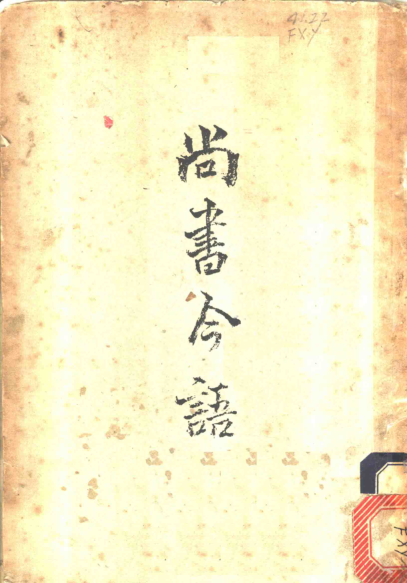 尚書今語
FXY
FXY